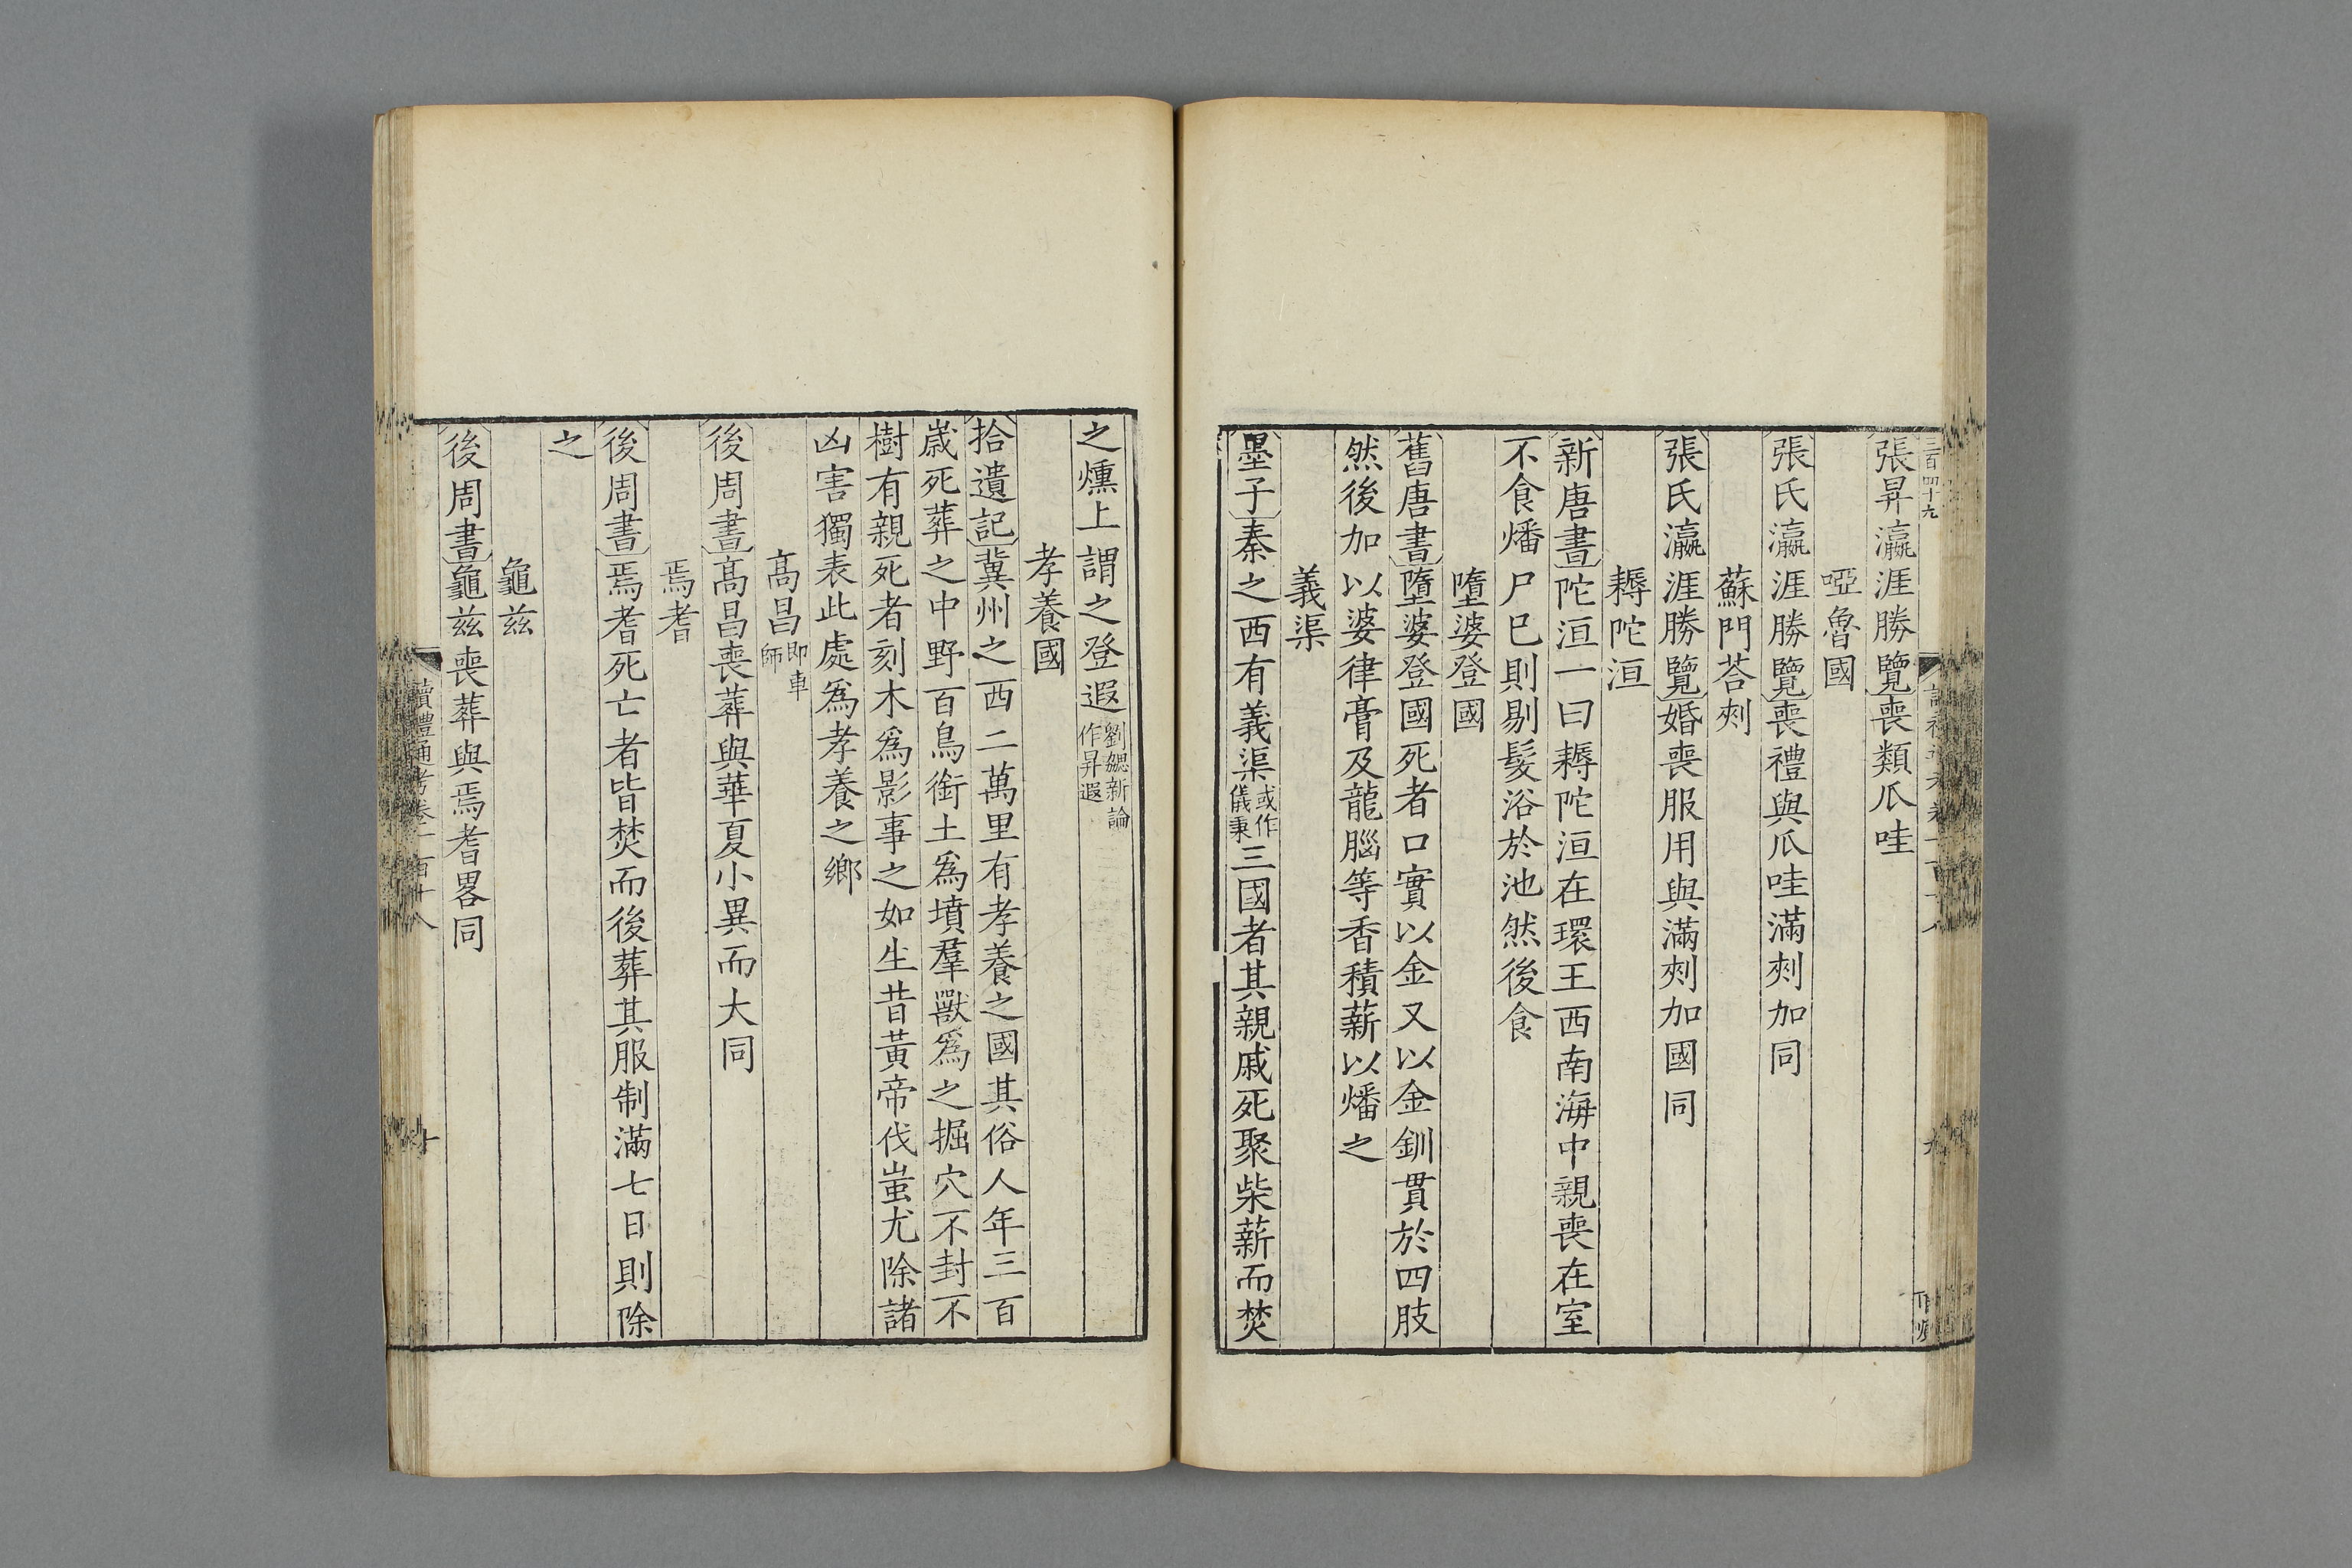 三百四十九
張昇瀛涯勝覽喪類爪哇
啞魯國
張氏瀛涯勝覽喪禮與爪哇滿剌加同
蘇門荅剌
張氏瀛涯勝覽婚喪服用與滿剌加國同
耨陀洹
新唐書陀洹一曰耨陀洹在環王西南海中親喪在室
不食燔尸已則剔髮浴於池然後食
墮婆登國
舊唐書墮婆登國死者口實以金又以金釧貫於四肢
然後加以婆律膏及龍腦等香積薪以燔之
義渠
墨子秦之西有義渠或作儀秉三國者其親戚死聚柴薪而焚
之燻上謂之登遐劉勰新論作昇遐
孝養國
拾遺記冀州之西二萬里有孝養之國其俗人年三百
嵗死葬之中野百鳥銜土爲墳羣獸爲之掘穴不封不
樹有親死者刻木爲影事之如生昔黃帝伐蚩尤除諸
凶害獨表此處爲孝養之鄉
高昌即車師
後周書高昌喪葬與華夏小異而大同
焉耆
後周書焉耆死亡者皆焚而後葬其服制滿七日則除
之
龜兹
後周書龜兹喪葬與焉耆畧同
讀禮通考卷一百十八
十